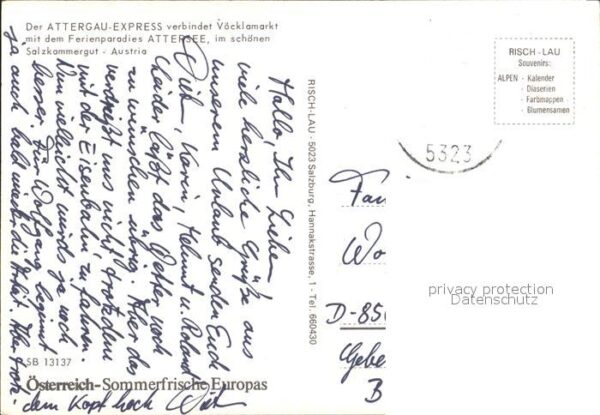 Der ATTERGAU-EXPRESS verbindet Vöcklamarkt
mit dem Ferienparadies ATTERSEE, im schönen
Salzkammergut - Austria
Hallo, Ihr Lieben!
viele herzliche Grüße aus
unserem Urlaub senden Euch
Karin, Helmut u. Roland
läßt das Wetter noch
zu wünschen übrig. Aber das
uns nicht trotzdem
mit der Eisenbahn zu fahren.
Nun vielleicht wird's ja noch
besser. Für Wolfgang beginnt
ja auch bald wieder die Arbeit.
dem Kopf hoch
SB 13137
Österreich-Sommerfrische Europas
RISCH-LAU · 5023 Salzburg, Hannakstrasse, 1 - Tel. 660430
RISCH-LAU
Souvenirs:
ALPEN - Kalender
- Diaserien
- Farbmappen
- Blumensamen
5323
Fa
Wo
D-850
Gebe
B
privacy protection
Datenschutz